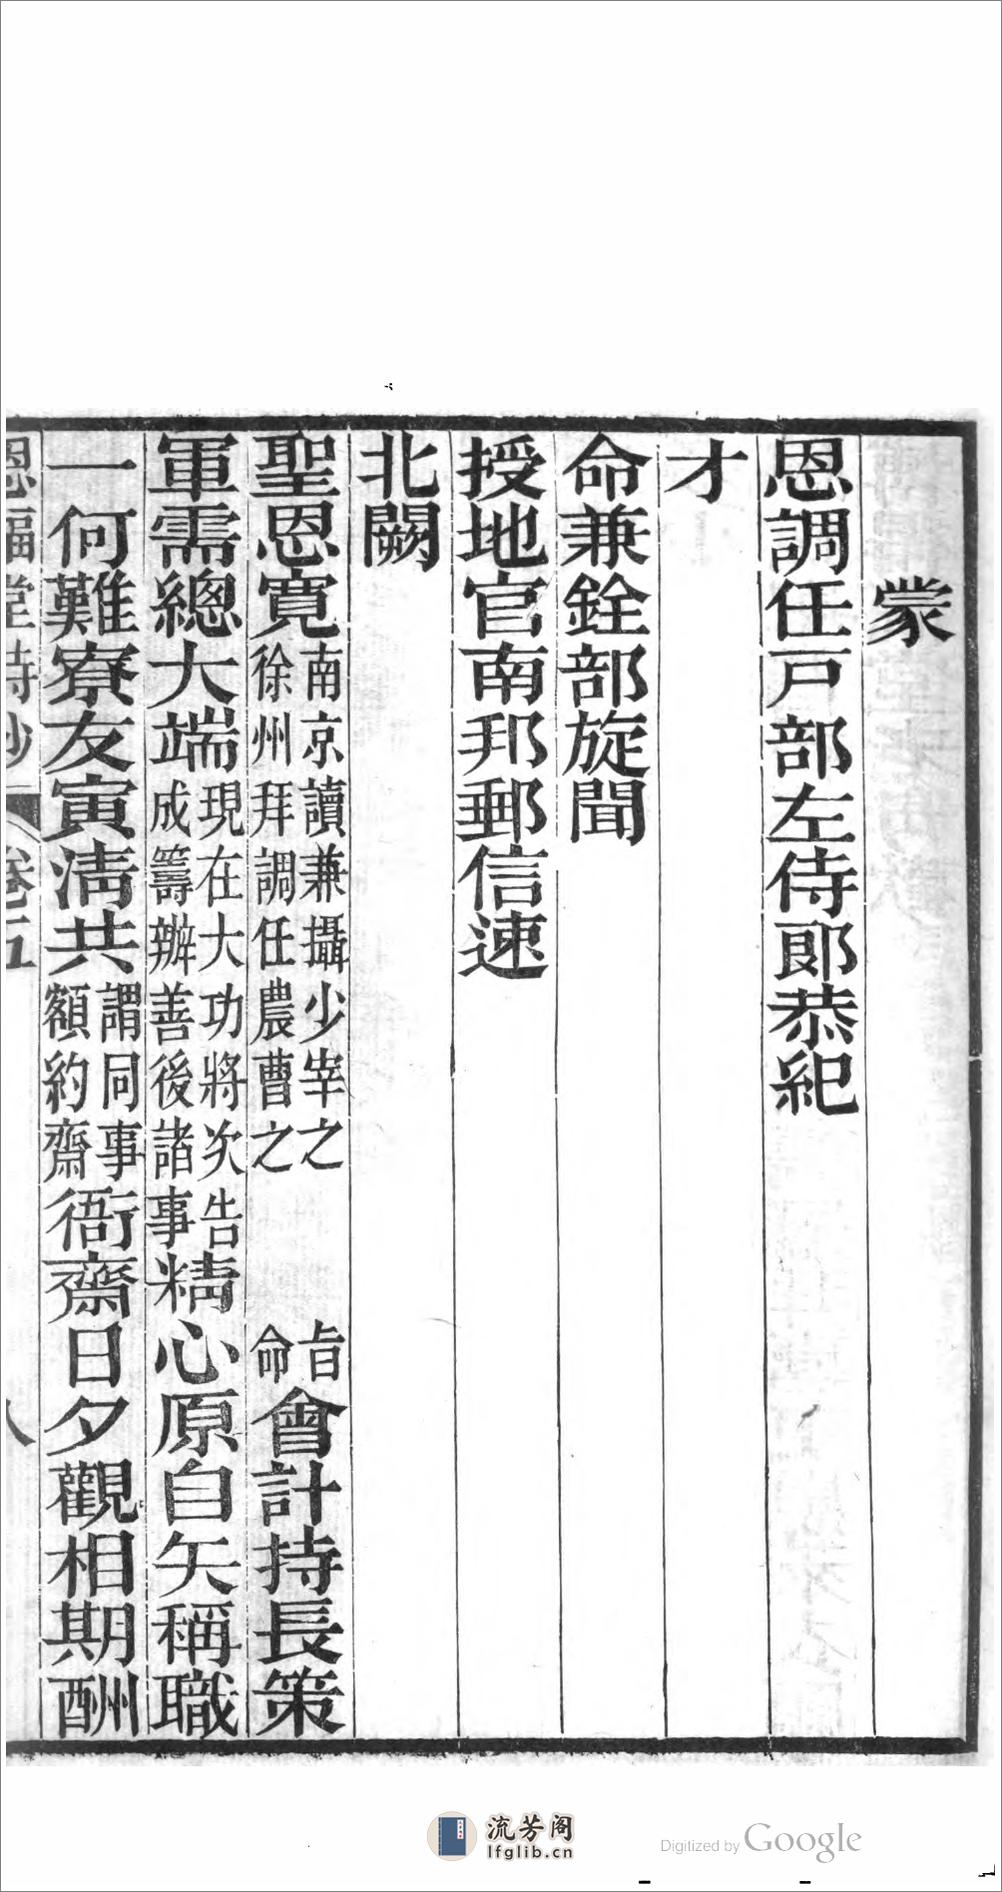 蒙
恩調任戸部左侍郎恭紀
才
命兼銓部旋聞
授地官南邦郵信速
北闕
聖恩寬南京讀兼攝少宰之旨徐州拜調任農曹之命會計持長策
軍需總大端現在大功將次告成籌辦善後諸事精心原自矢稱職
一何難寮友寅清共謂同事額約齋衙齋日夕觀相期酬
恩福堂詩鈔 卷五 八
流芳阁
lfglib.cn
Digitized by Google